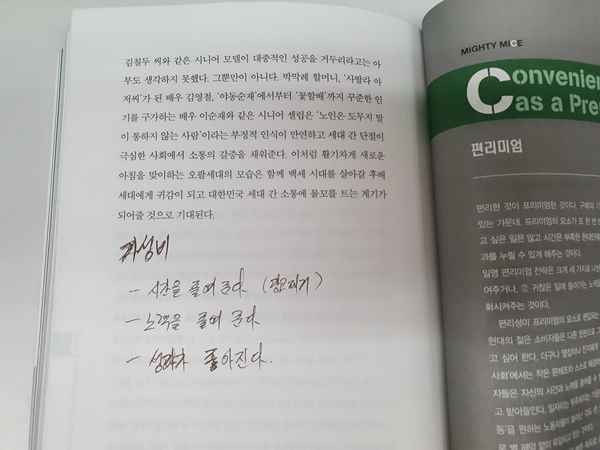 김칠두 씨와 같은 시니어 모델이 대중적인 성공을 거두리라고는 아
무도 생각하지 못했다. 그뿐만이 아니다. 박막례 할머니, ‘사딸라 아
저씨’가 된 배우 김영철, ‘야동순재’에서부터 ‘꽃할배’까지 꾸준한 인
기를 구가하는 배우 이순재와 같은 시니어 셀럽은 ‘노인은 도무지 말
이 통하지 않는 사람’이라는 부정적 인식이 만연하고 세대 간 단절이
극심한 사회에서 소통의 갈증을 채워준다. 이처럼 활기차게 새로운
아침을 맞이하는 오팔세대의 모습은 함께 백세 시대를 살아갈 후배
세대에게 귀감이 되고 대한민국 세대 간 소통에 물꼬를 트는 계기가
되어줄 것으로 기대된다.
가성비
- 시간을 줄여 준다
- 노력을 줄여 준다
- 성과가 좋아진다.
MIGHTY MICE
Convenien
as a Pre
편리미엄
편리한 것이 프리미엄한 것이다. 구매의 기
있는 가운데, 프리미엄의 요소가 또 한 번
고 싶은 일은 많고 시간은 부족한 현대인에
과를 누릴 수 있게 해주는 것이다.
일명 편리미엄 전략은 크게 세 가지로 나
여주거나, ② 귀찮은 일에 들어가는 노력
화시켜주는 것이다.
편리성이 프리미엄의 요소로 편입되는
현대의 젊은 소비자들은 다른 한편으로
고 싶어 한다. 더구나
사회’에서는 작은 문제조차 스스로 해결
자들은 자신의 시간과 노력을
고 받아들인다.
동’을 원하는 노동자들이
로 별 제약 없이